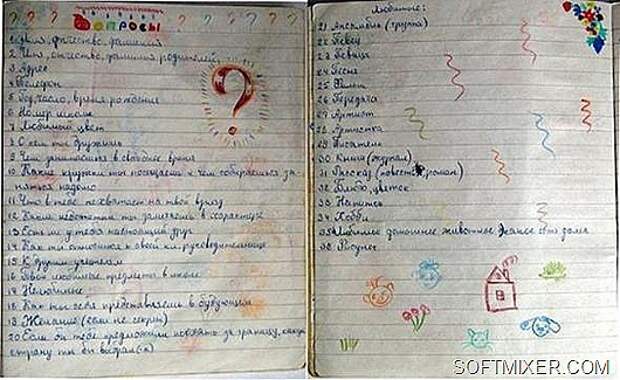 Вопросы
1 Имя, отчество, фамилия
2 Имя, отчество, фамилия родителей
3 Адрес
4 Телефон
5 Год, число, время, рождения
6 Номер школы
7 Любимый цвет
8 С кем ты дружишь
9 Чем занимаешься в свободное время
10 Какие кружки ты посещаешь и чем собираешься за-
няться надолго
11 Что в тебе не хватает на твой взгляд
12 Какие недостатки ты замечаешь в характере
13 Есть ли у тебя настоящий друг
14 Как ты относишься к своей кл. руководительнице
15 К другим учителям
16 Твои любимые предметы в школе
17 Нелюбимые
18 Как ты себя представляешь в будущем
19 Желания (если не секрет)
20 Если бы тебе предложили поехать за границу, какую
страну ты бы выбрал(-а)
Любимые:
21 Ансамбль (группа)
22 Певец
23 Певица
24 Песня
25 Фильм
26 Передача
27 Артист
28 Артистка
29 Писатель
30 Книга (журнал)
31 Рассказ (повесть, роман)
32 Блюдо, цветок
33 Напиток
34 Хобби
35 Любимое домашнее животное
36
SOFTMIXER.COM